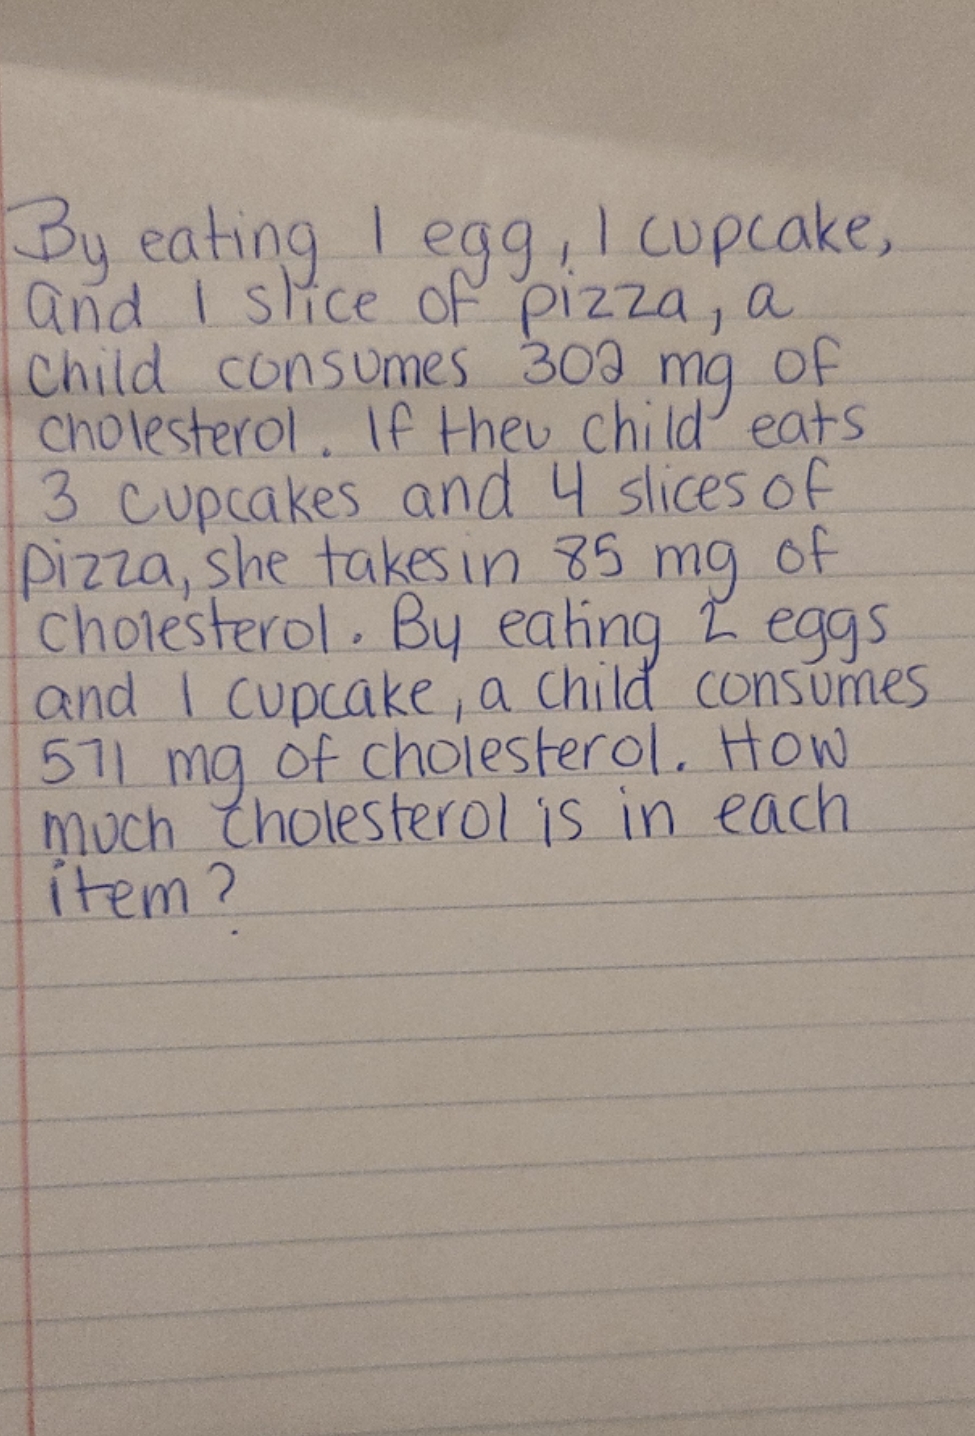 By eating 1 egg, 1 cupcake,
and 1 slice of pizza, a
child consumes 302 mg of
cholesterol. If theu child eats
3 cupcakes and 4 slices of
pizza, she takes in 85 mg of
cholesterol. By eating 2 eggs
and 1 cupcake, a child consumes
571 mg of cholesterol. How
much cholesterol is in each
item?